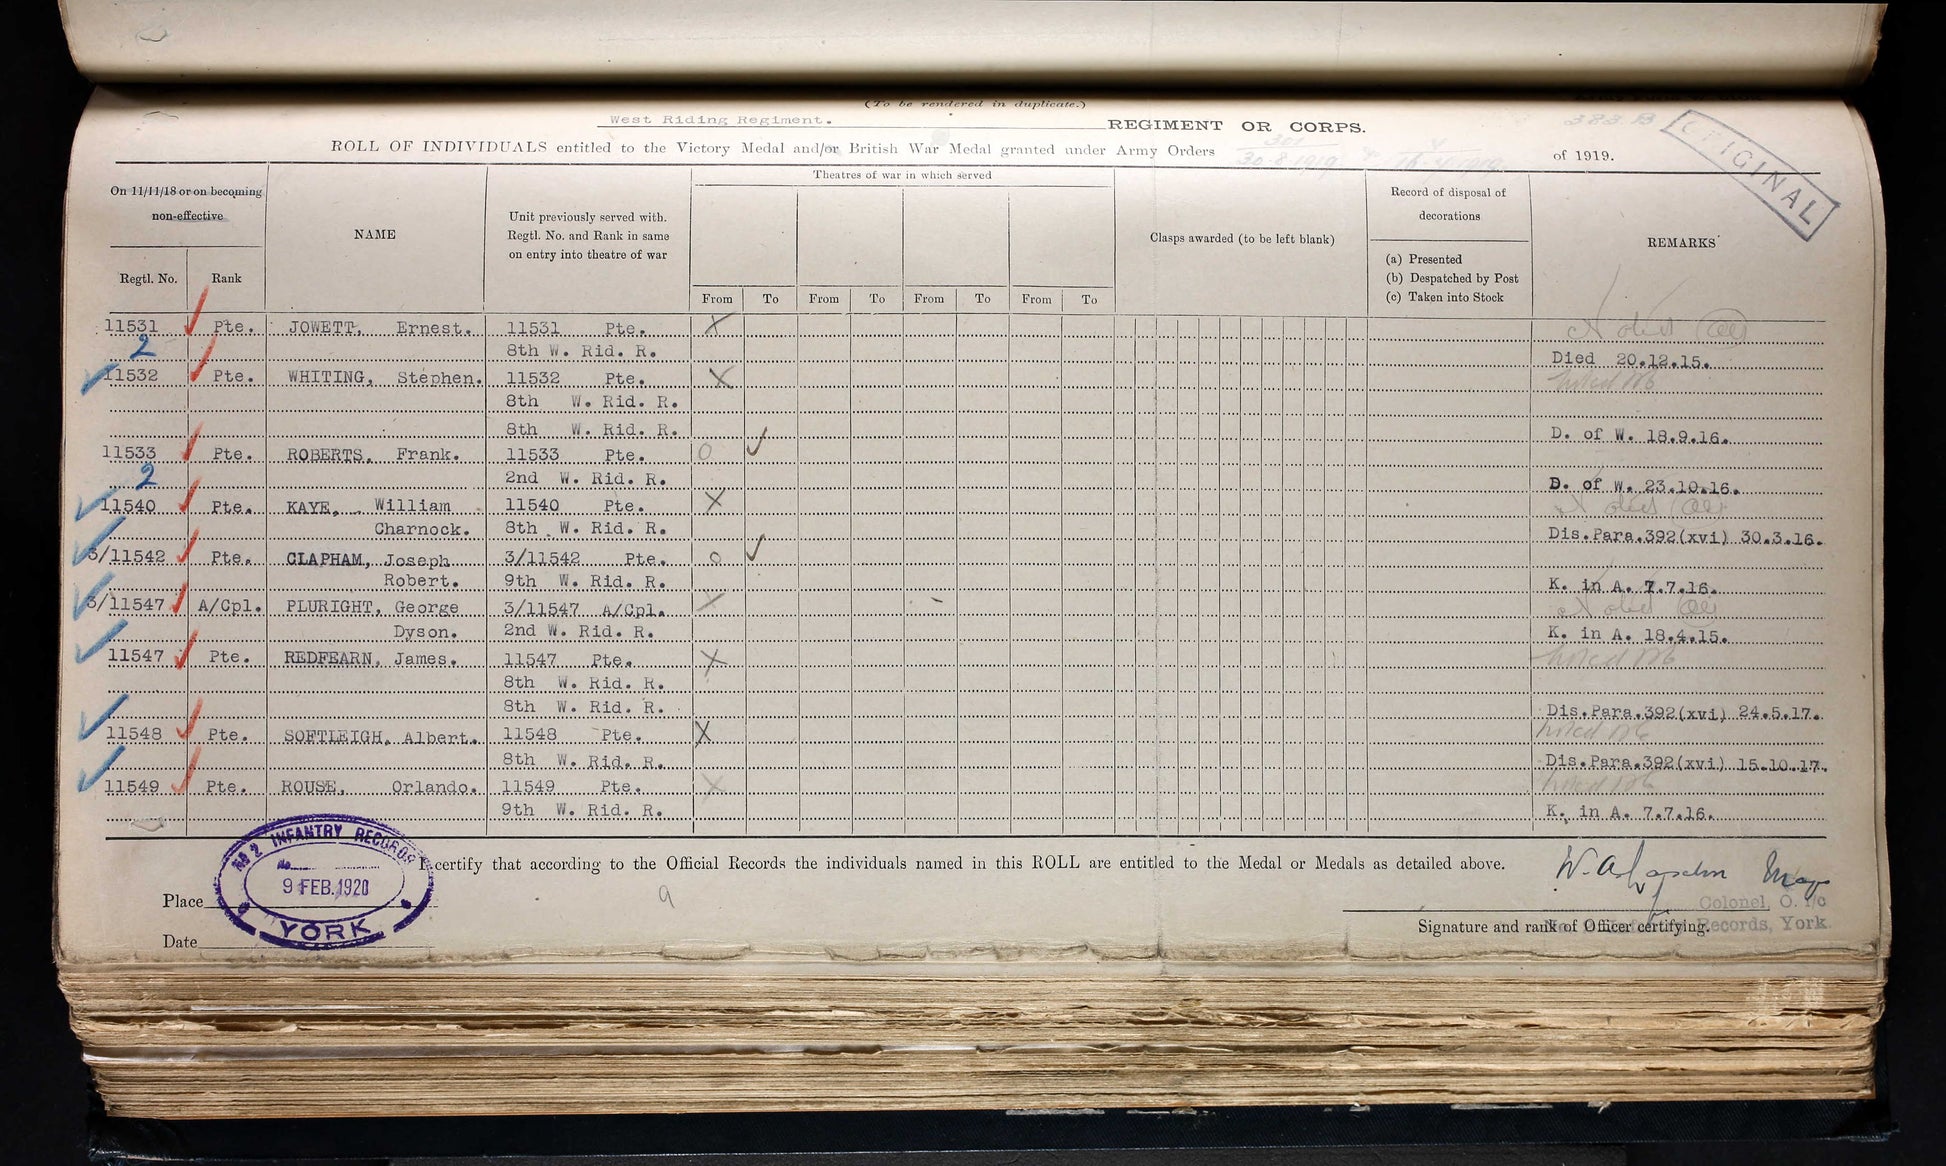 (To be rendered in duplicate.)
West Riding Regiment. REGIMENT OR CORPS.
383.B
ORIGINAL
ROLL OF INDIVIDUALS entitled to the Victory Medal and/or British War Medal granted under Army Orders 301 30.8.1919 4 of 1919.
On 11/11/18 or on becoming non-effective
Regtl. No. Rank
NAME
Unit previously served with. Regtl. No. and Rank in same on entry into theatre of war
Theatres of war in which served
From To From To From To From To
Clasps awarded (to be left blank)
Record of disposal of decorations
(a) Presented
(b) Despatched by Post
(c) Taken into Stock
REMARKS
11531 Pte. JOWETT, Ernest. 11531 Pte. X
2 8th W. Rid. R. Died 20.12.15.
11532 Pte. WHITING, Stephen. 11532 Pte. X
8th W. Rid. R.
8th W. Rid. R. D. of W. 18.9.16.
11533 Pte. ROBERTS, Frank. 11533 Pte. O
2 2nd W. Rid. R. D. of W. 23.10.16.
11540 Pte. KAYE, William 11540 Pte. X
Charnock. 8th W. Rid. R. Dis.Para.392(xvi) 30.3.16.
3/11542 Pte. CLAPHAM, Joseph 3/11542 Pte. O
Robert. 9th W. Rid. R. K. in A. 7.7.16.
3/11547 A/Cpl. PLURIGHT, George 3/11547 A/Cpl.
Dyson. 2nd W. Rid. R. K. in A. 18.4.15.
11547 Pte. REDFEARN, James. 11547 Pte. X
8th W. Rid. R.
8th W. Rid. R. Dis.Para.392(xvi) 24.5.17.
11548 Pte. SOFTLEIGH, Albert. 11548 Pte. X
8th W. Rid. R. Dis.Para.392(xvi) 15.10.17.
11549 Pte. ROUSE, Orlando. 11549 Pte. X
9th W. Rid. R. K. in A. 7.7.16.
No 2 INFANTRY RECORDS
No
9 FEB.1920
YORK
I certify that according to the Official Records the individuals named in this ROLL are entitled to the Medal or Medals as detailed above.
Place
9
Colonel, O. i/c
Signature and rank of Officer certifying.
Records, York.
Date